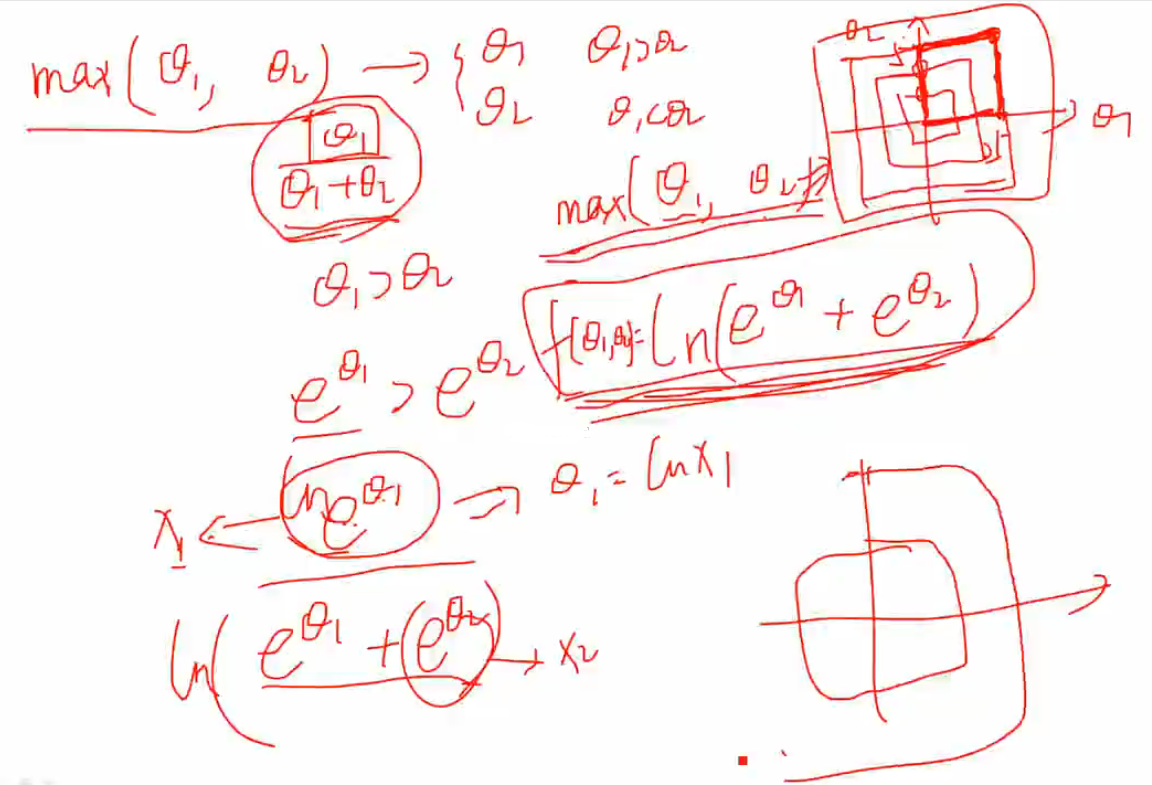 max(θ₁, θ₂) → { θ₁ θ₁>θ₂
θ₂ θ₁<θ₂
θ₂
θ₁
θ₁
θ₁+θ₂
max(θ₁, θ₂)
θ₁>θ₂
f(θ₁,θ₂)=ln(e^θ₁ + e^θ₂)
e^θ₁ > e^θ₂
ln e^θ₁ → θ₁ = ln x₁
x₁ ←
ln(e^θ₁ + (e^θ₂) → x₂